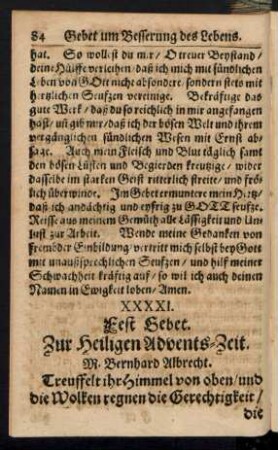 84 Gebet um Besserung des Lebens.
hat. So wollest du mir/ O treuer Beystand/
deine Hülffe verleihen/ daß ich mich mit sündlichen
Leben von GOtt nicht absondere/ sondern stets mit
hertzlichen Seufzen vereinige. Bekräftige das
gute Werk/ daß du so reichlich in mir angefangen
hast/ uñ gib mir/ daß ich der bösen Welt und ihrem
vergänglichen sündlichen Wesen mit Ernst ab-
sage. Auch mein Fleisch und Blut täglich samt
den bösen Lüsten und Begierden kreutzige/ wider
dasselbe im starken Geist ritterlich streite/ und frö-
lich überwinde. Im Gebet ermuntere mein Hertz/
daß ich andächtig und eyfrig zu GOTT seufze.
Reisse aus meinem Gemüth alle Lässigkeit und Un-
lust zur Arbeit. Wende meine Gedanken von
frembder Einbildung/ vertritt mich selbst bey Gott
mit unaußsprechlichen Seufzen/ und hilf meiner
Schwachheit kräftig auf/ so wil ich auch deinen
Namen in Ewigkeit loben/ Amen.
XXXXI.
Fest Gebet.
Zur Heiligen Advents-Zeit.
M. Bernhard Albrecht.
Treuffelt ihr Himmel von oben/ und
die Wolken regnen die Gerechtigkeit/
die